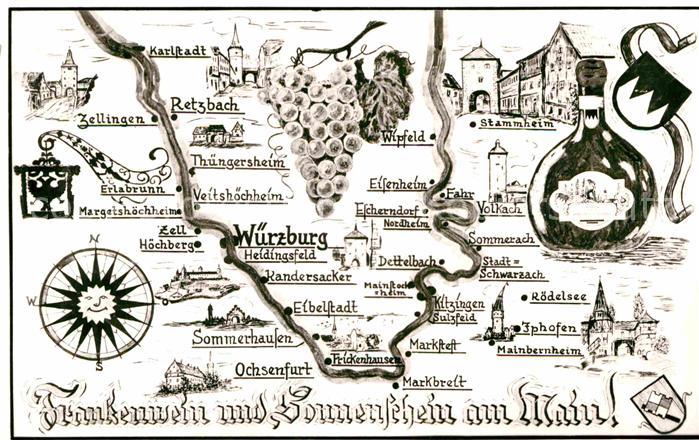 Karlstadt
Zellingen
Retzbach
Thüngersheim
Erlabrunn
Veitshöchheim
Margetshöchheim
Zell
Höchberg
Würzburg
Heidingsfeld
Randersacker
Eibelstadt
Sommerhausen
Ochsenfurt
Frickenhausen
Wipfeld
Stammheim
Eisenheim
Fahr
Escherndorf
Volkach
Nordheim
Sommerach
Dettelbach
Stadt=
Schwarzach
Mainstock=
=heim
Kitzingen
Sulzfeld
Rödelsee
Iphofen
Mainbernheim
Marksteft
Markbreit
N
W
O
S
Frankenwein und Sonnenschein am Main!